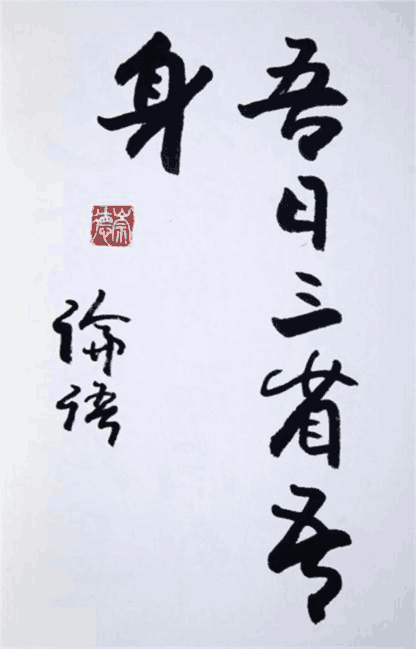 吾日三省吾
身
崇德
论语